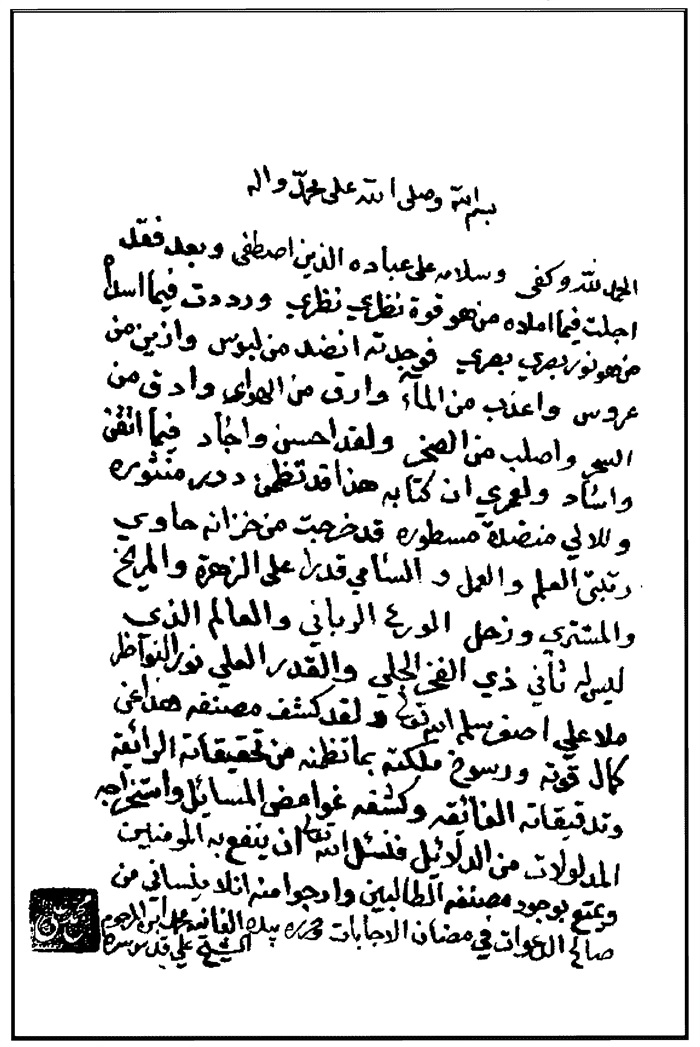 بسم الله وصلى الله على محمد واله
الحمد لله وكفى وسلام على عباده الذين اصطفى وبعد فقد
اجلت فيما املاه من هو قوة نظري نظري ورددت فيما اسداه
من هو نور بصري بصري فوجدته انضد من لبوس وازين من
عروس واعذب من الماء وارق من الهواء وادق من
السحر واصلب من الصخر ولقد احسن واجاد فيما اتقن
واشاد ولعمري ان كتابه هذا قد تظمن درر منثوره
ولئالي منضدة مسطوره قد خرجت من خزانه حاوي
رتبتي العلم والعمل و السامي قدرا على الزهرة والمريخ
والمشتري وزحل الورع الرباني والعالم الذي
ليس له ثاني ذي الفخر الجلي والقدر العلي نور النواظر
ملا علي اصغر سلمه الله تعالى ولقد كشف مصنفه هذا عن
كمال قوته ورسوخ ملكته بما تظمنه من تحقيقاته الرائقه
وتدقيقاته الفائقه وكشفه غوامض المسائل واستخراجه
المدلولات من الدلائل فنسئل الله تعالى ان ينفع به المومنين
ويمتع بوجود مصنفه الطالبين وارجوا منه ان لا ينساني من
صالح الدعوات في مضان الاجابات حرره بيده الفانيه محمد ابن المرحوم
الشيخ علي قدس سره